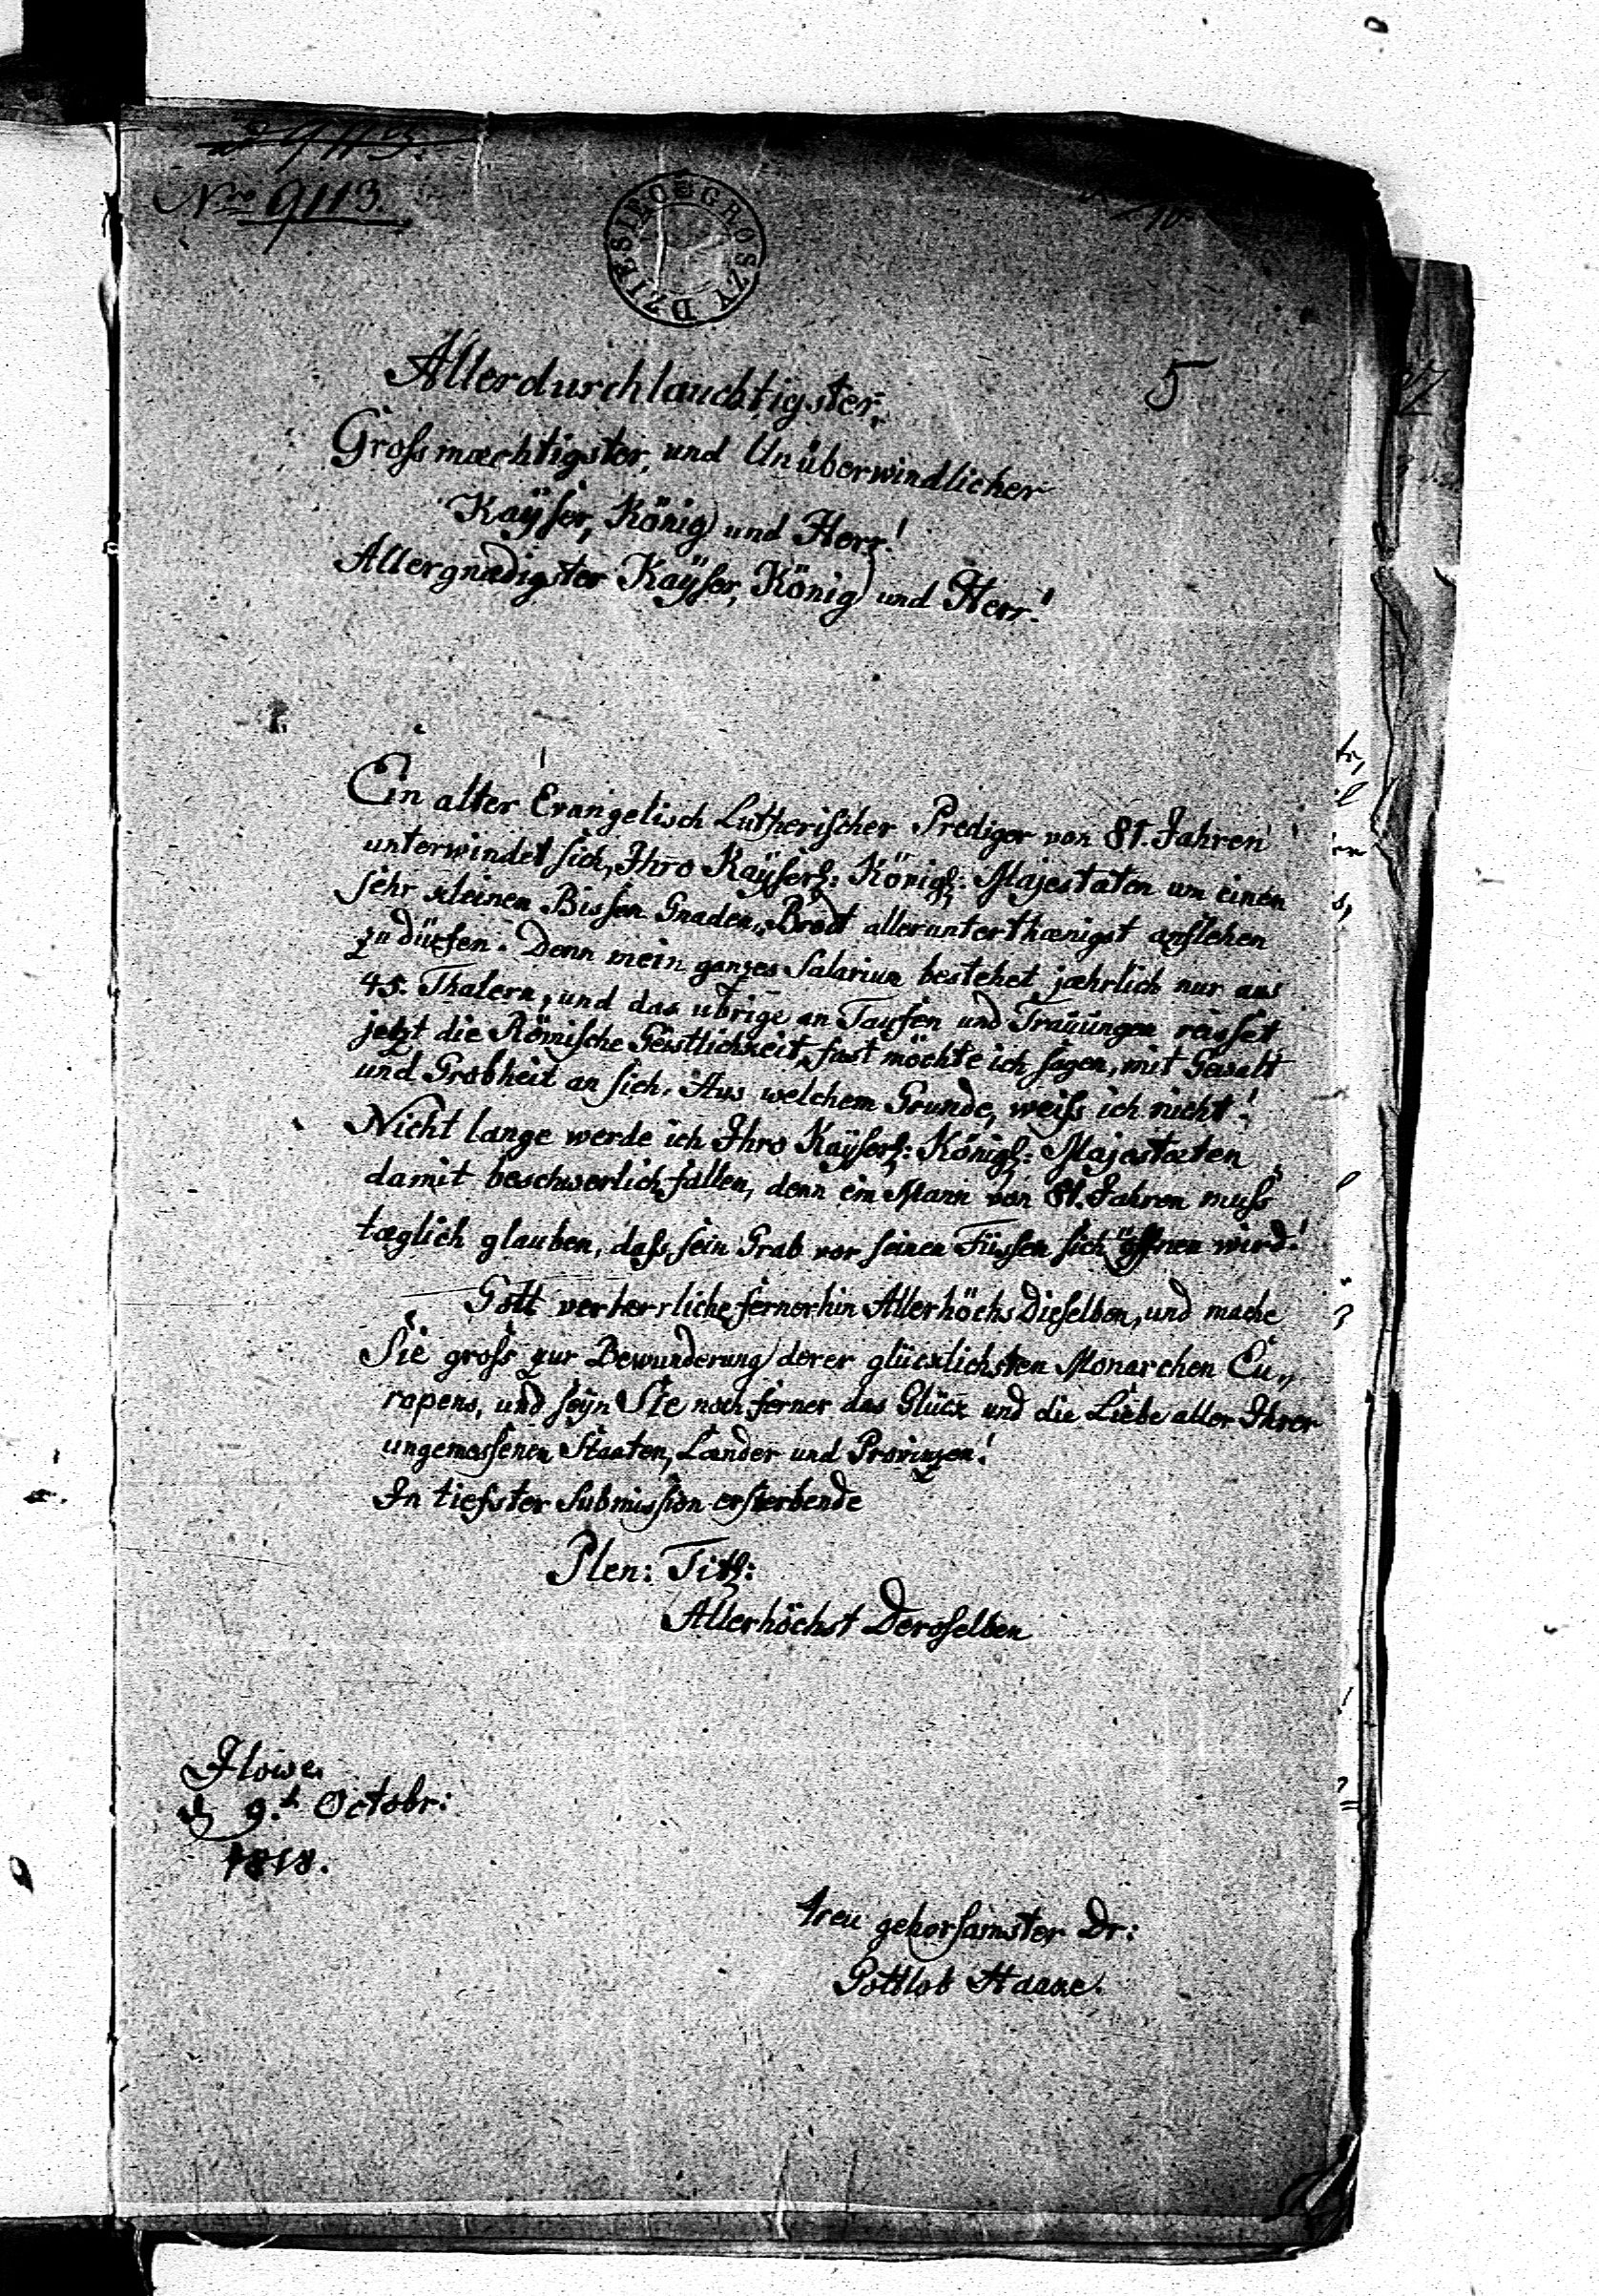 9113.
Nro 9113.
DZIESIĘĆ GROSZY
5
Allerdurchlauchtigster,
Grossmæchtigster, und Unüberwindlicher
Kaÿser, König und Herr!
Allergnædigster Kaÿser, König und Herr!
Ein alter Evangelisch Lutherischer Prediger von 81. Jahren
unterwindet sich, Ihro Kaÿserl: Königl: Majestæten um einen
sehr kleinen Bissen Gnaden„Brodt allerunterthænigst anflehen
zu dürfen. Denn mein ganzes Salarium bestehet jæhrlich nur aus
45. Thalern, und das ubrige an Taufen und Trauungen reisset
jetzt die Römische Geistlichkeit, fast möchte ich sagen, mit Gewalt
und Grobheit an sich. Aus welchem Grunde, weiss ich nicht!
Nicht lange werde ich Ihro Kaÿserl: Königl: Majestæten
damit beschwerlich fallen, denn ein Mann von 81. Jahren muss
tæglich glauben, dass sein Grab vor seinen Füssen sich öffnen wird!
Gott verherrliche fernerhin Allerhöchs Dieselben, und mache
Sie gross zur Bewunderung derer glücklichsten Monarchen Eu„
ropens, und seÿn Sie noch ferner das Glück und die Liebe aller Ihrer
ungemessenen Staaten, Lænder und Provinzen!
In tiefster Submission ersterbende
Plen: Titl:
Allerhöchst Deroselben
Ilow.
d 9.t Octobr:
1818.
treu gehorsamster Dr:
Gottlob Haacke.